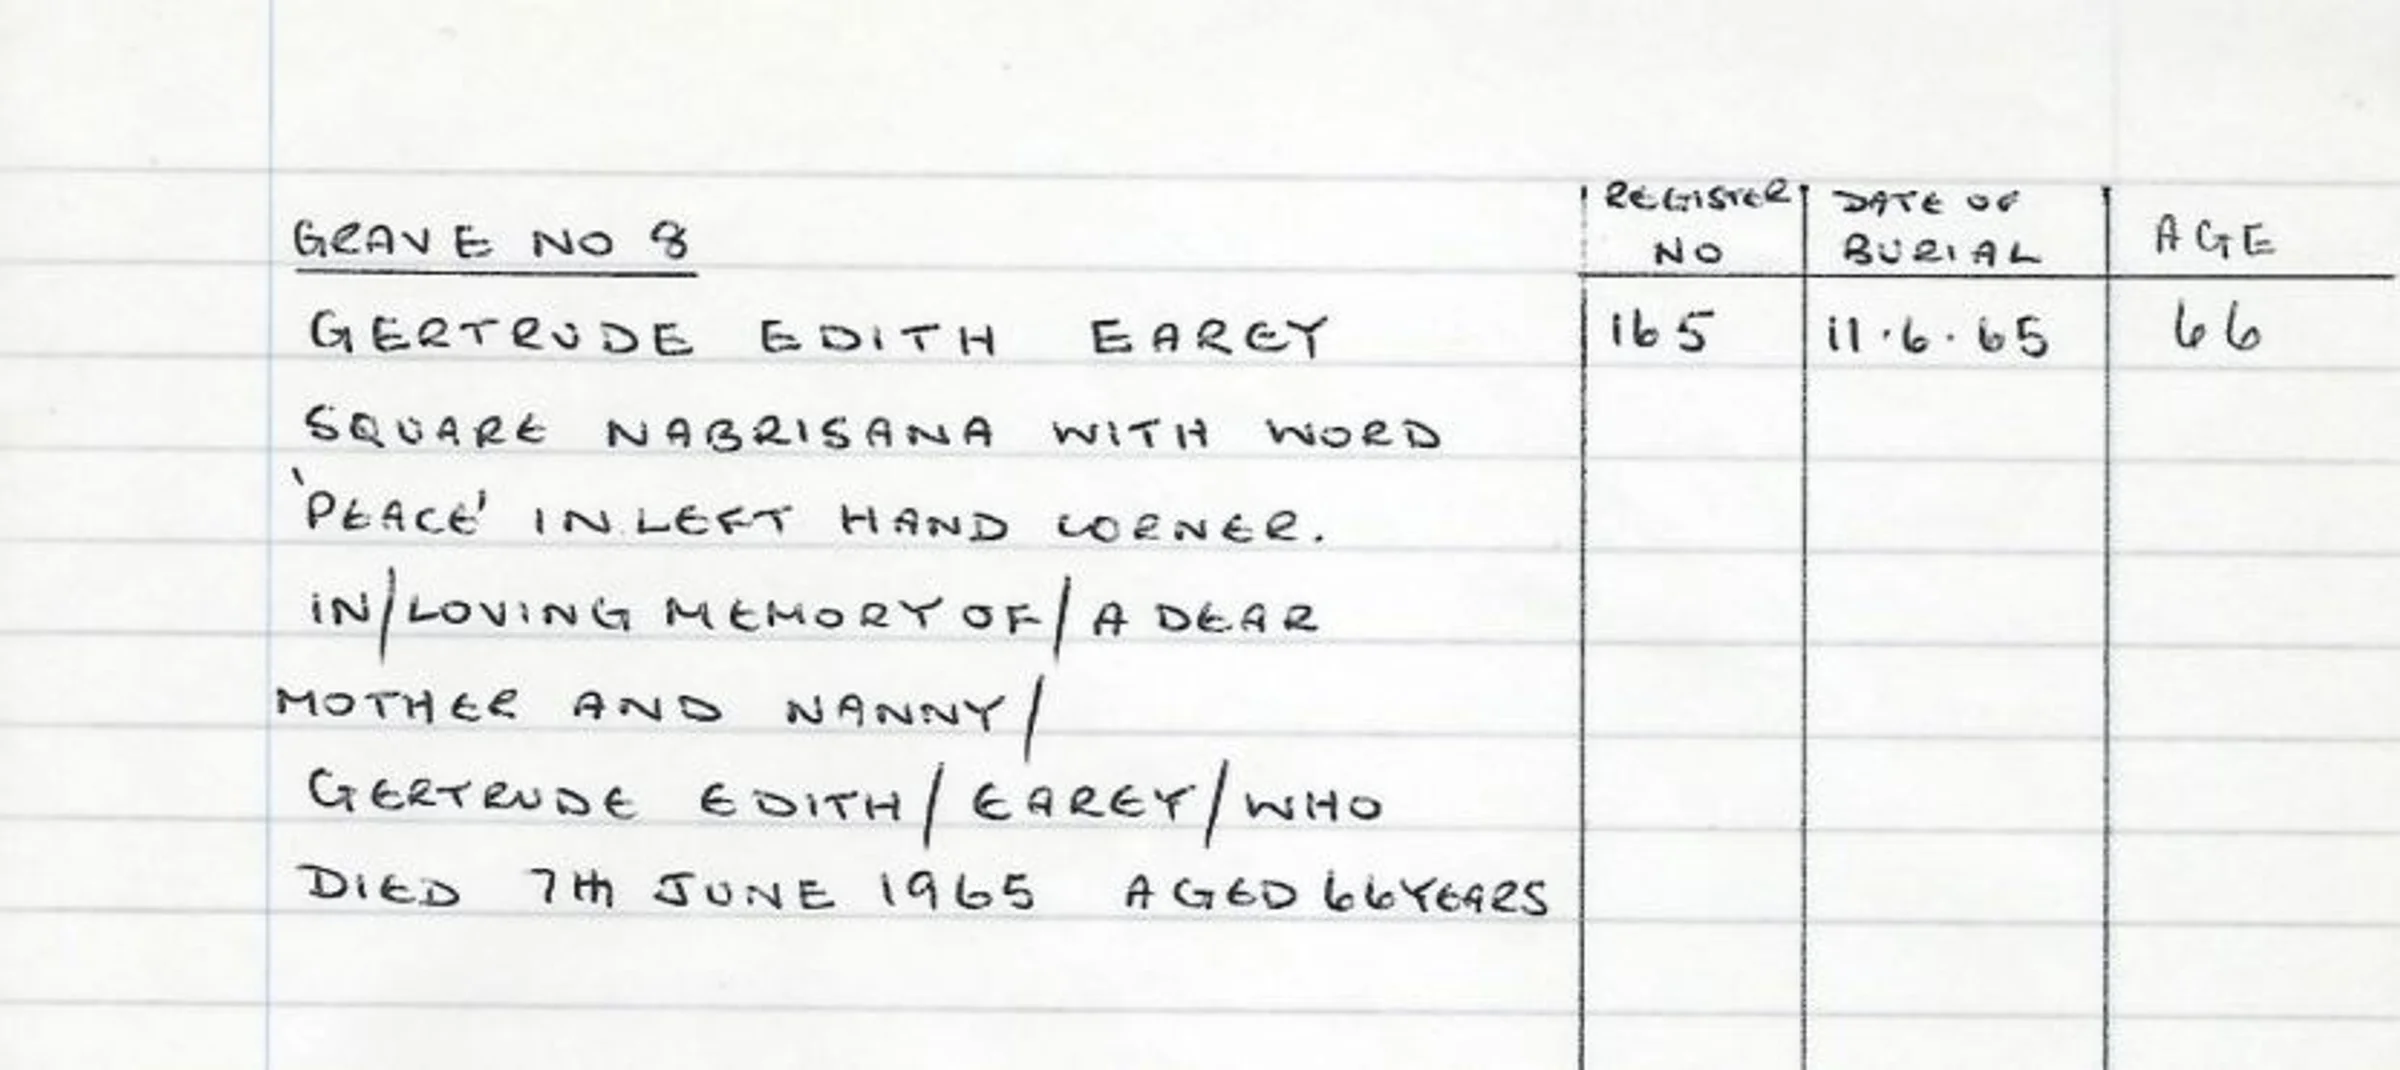 GRAVE NO 8
REGISTER NO
DATE OF BURIAL
AGE
GERTRUDE EDITH EAREY 165 11.6.65 66
SQUARE NABRISANA WITH WORD
'PEACE' IN LEFT HAND CORNER.
IN/LOVING MEMORY OF/A DEAR
MOTHER AND NANNY/
GERTRUDE EDITH/EAREY/WHO
DIED 7TH JUNE 1965 AGED 66 YEARS